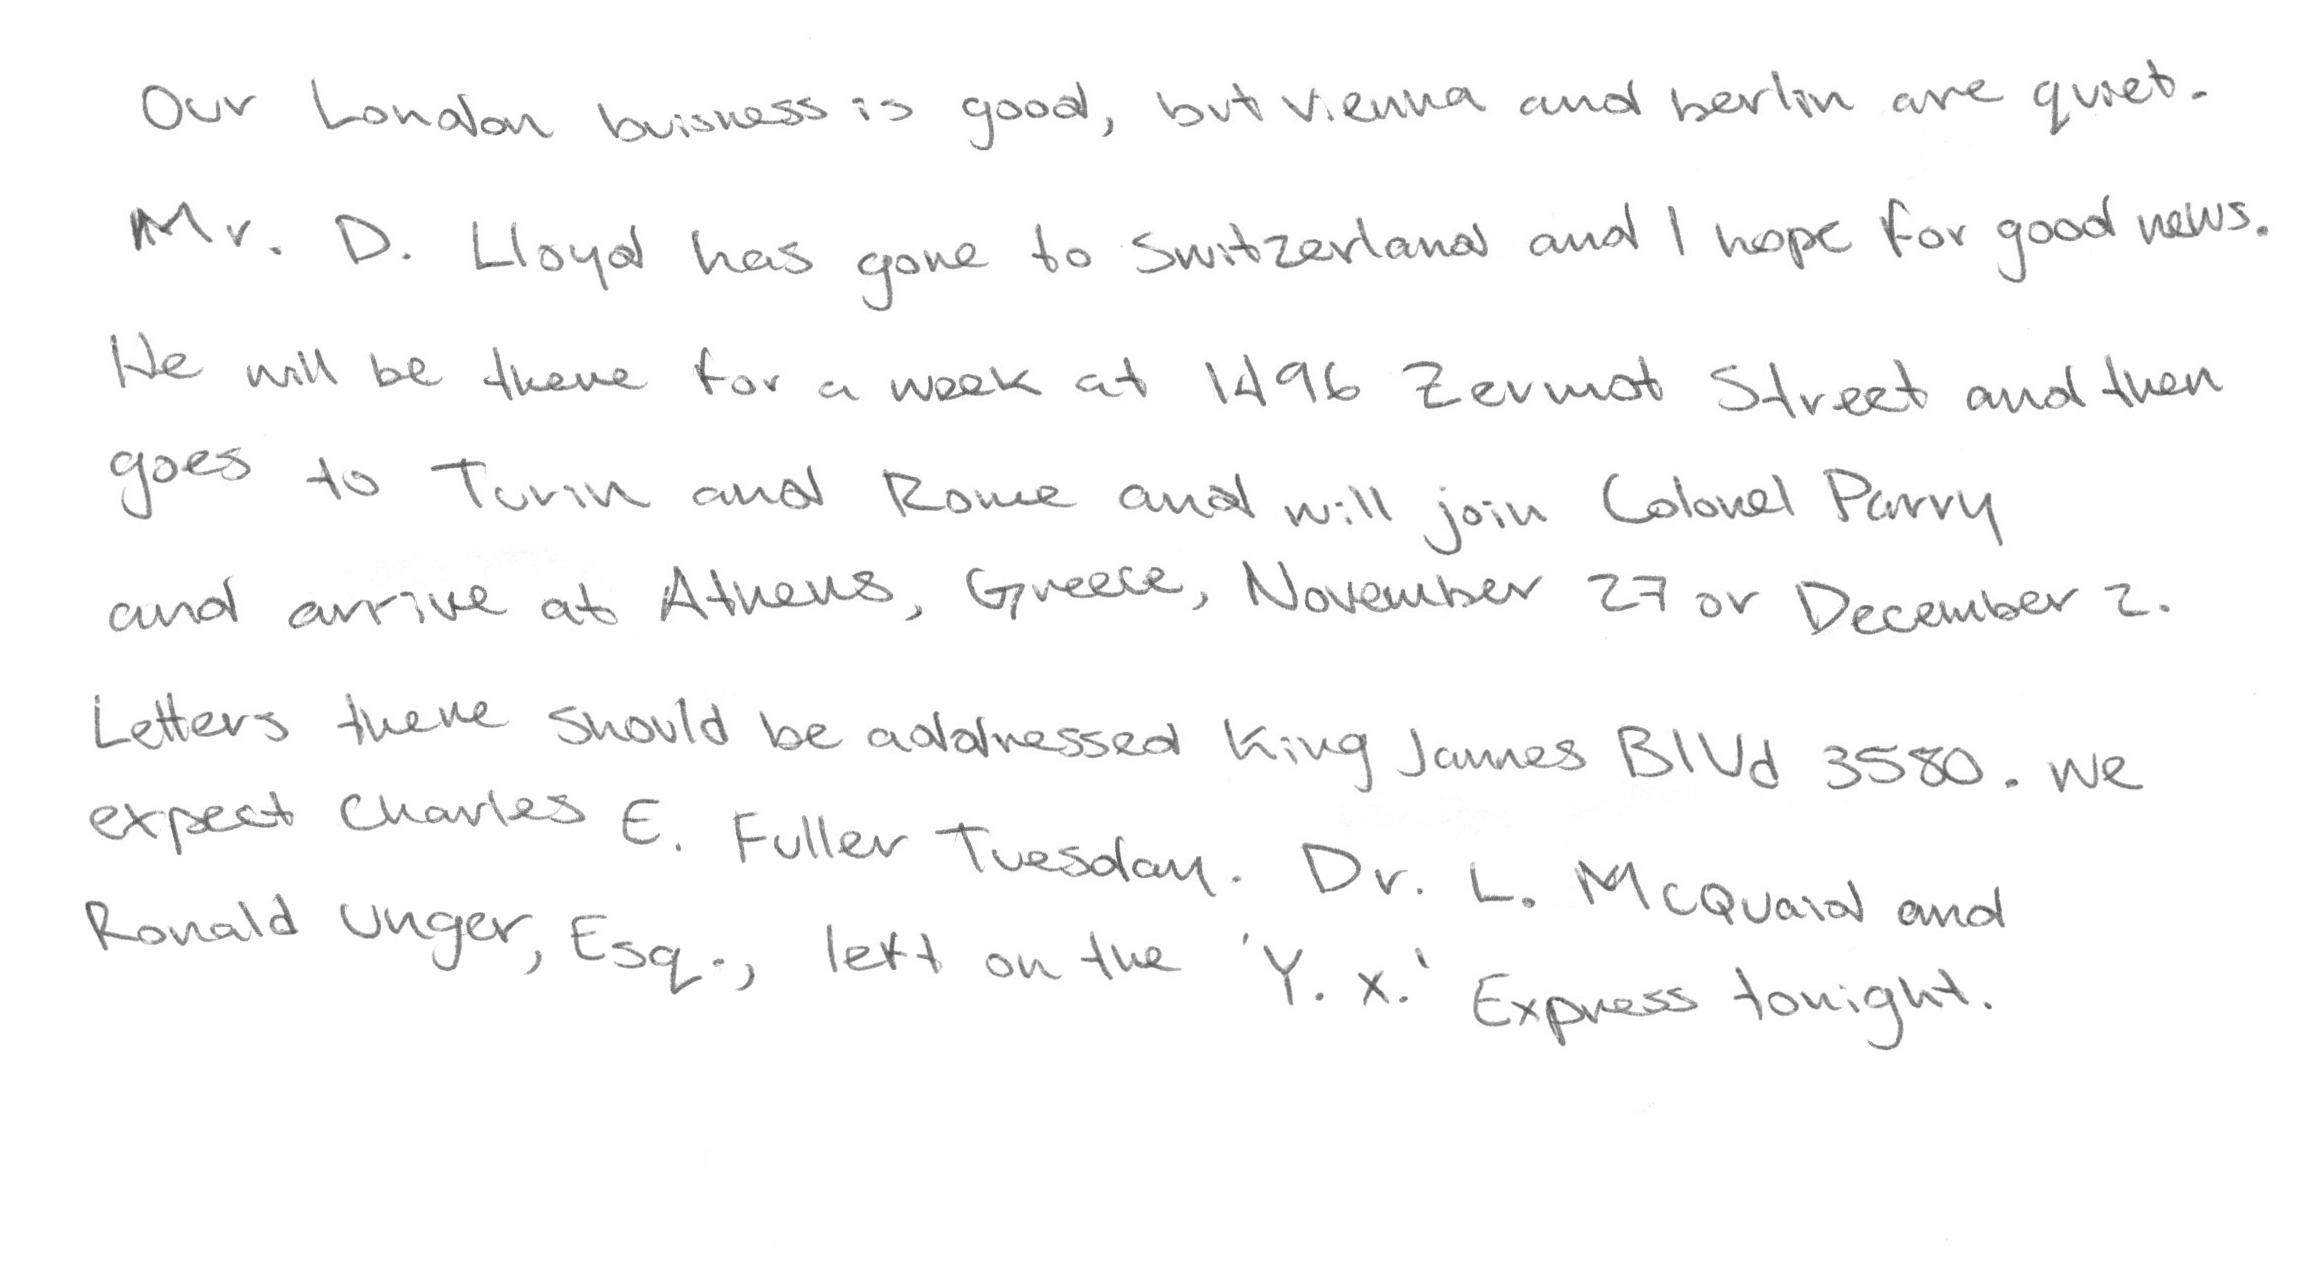 Our London buisness is good, but vienna and berlin are quiet.
Mr. D. Lloyd has gone to Switzerland and I hope for good news.
He will be there for a week at 1496 Zermot Street and then
goes to Turin and Rome and will join Colonel Parry
and arrive at Athens, Greece, November 27 or December 2.
Letters there should be addressed King James Blvd 3580. We
expect Charles E. Fuller Tuesday. Dr. L. McQuaid and
Ronald Unger, Esq., left on the 'Y. X.' Express tonight.